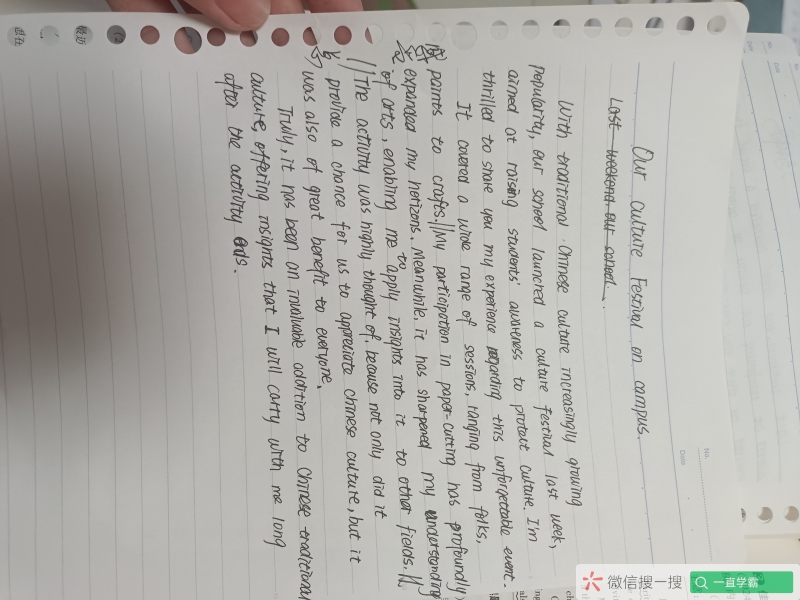 Our culture Festival on campus.
Last weekend our school.
With traditional Chinese culture increasingly growing
popularity, our school launched a culture festival last week,
aimed at raising students' awareness to protact culture. I'm
thrilled to share you my experience regarding this unforgettable event.
It covered a wide range of sessions, ranging from folks,
paints to crafts.//My participation in paper-cutting has profoundly
expanded my horizons. Meanwhile, it has sharpened my understanding
of arts, enabling me to apply insights into it to other fields.//
//The activity was highly thought of, because not only did it
provide a chance for us to appreciate Chinese culture, but it
was also of great benefit to everyone.
Truly, it has been an invaluable addition to Chinese traditional
culture, offering insights that I will carry with me long
after the activity ends.
No.
Date
微信搜一搜
一直学霸